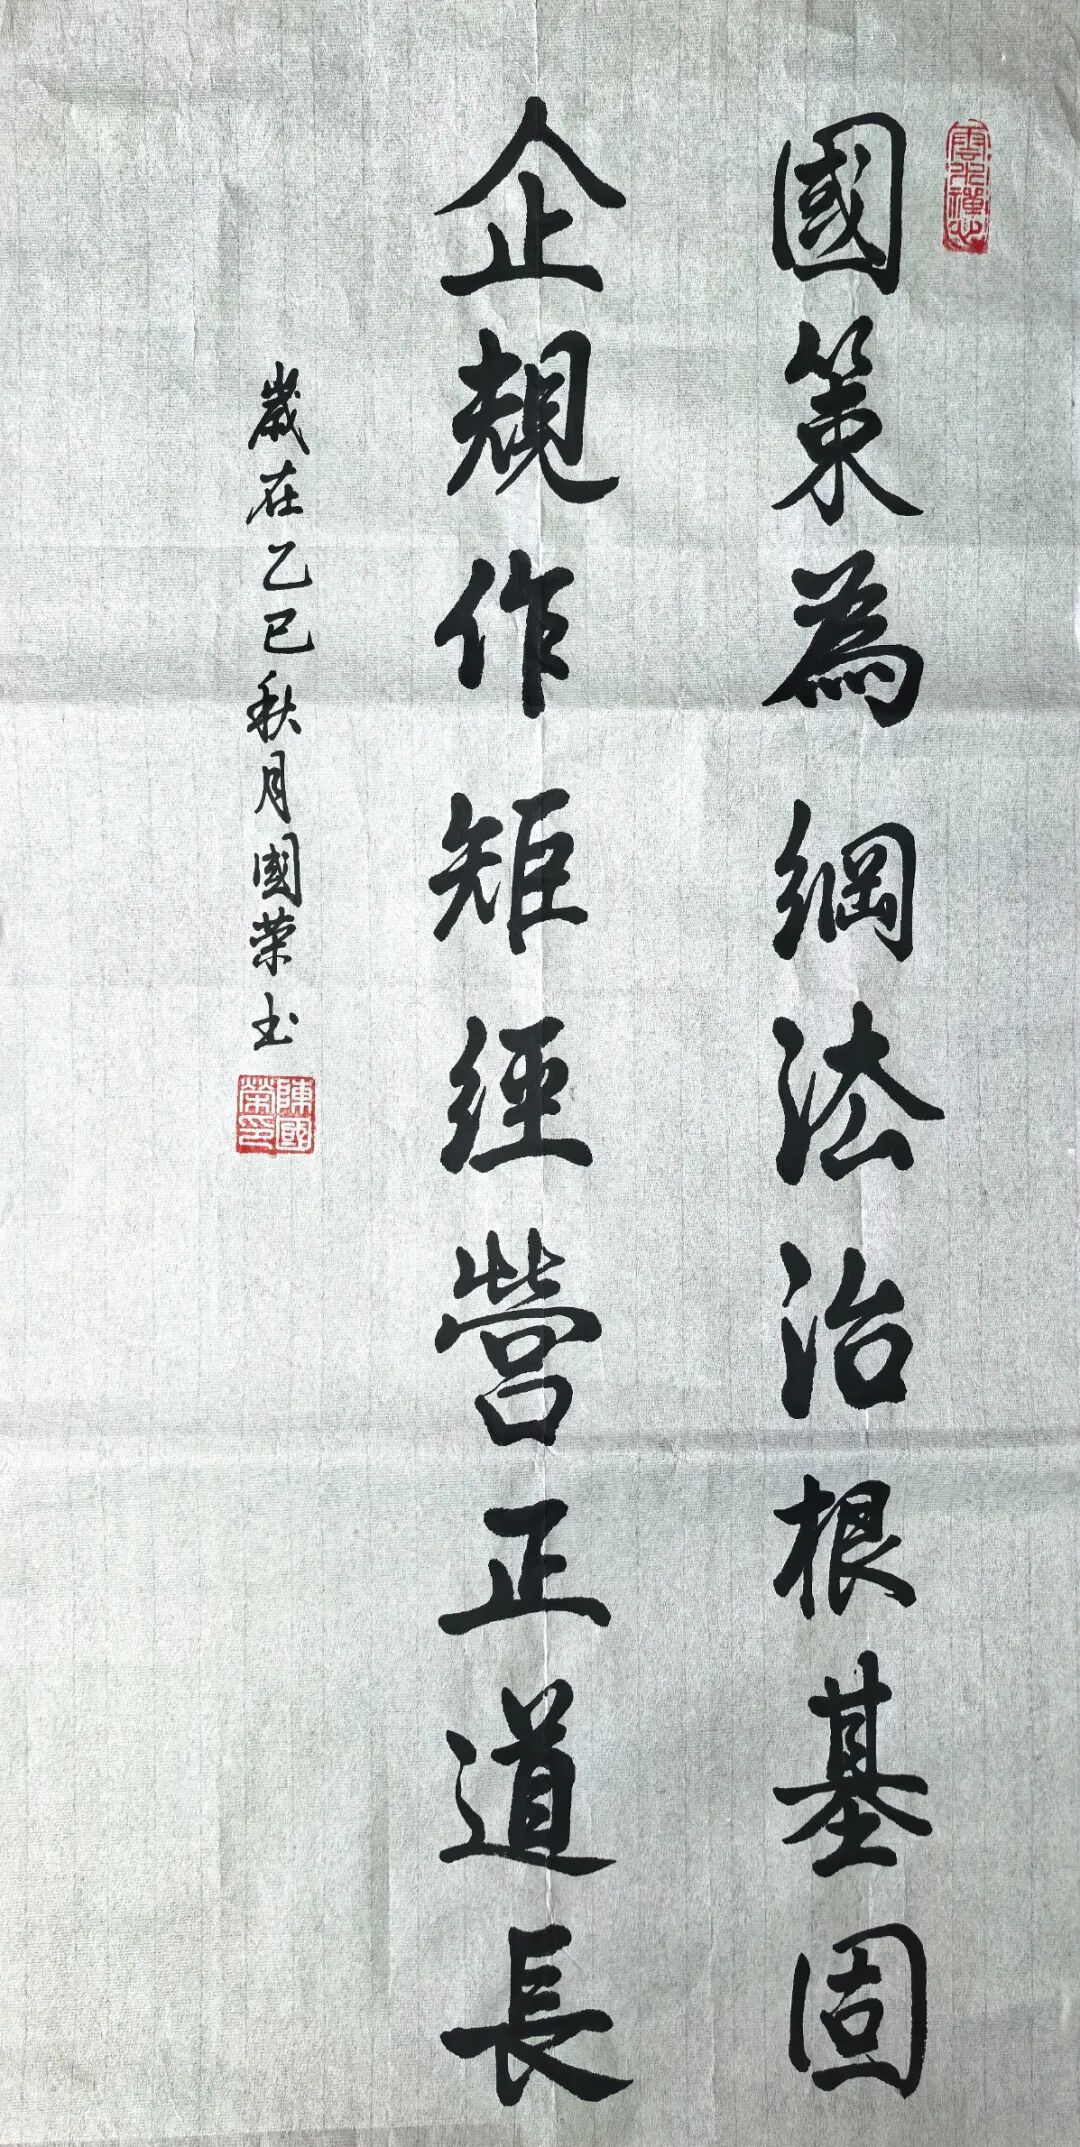 雲水禪心
國策為綱法治根基固
企規作矩經營正道長
歲在乙巳秋月國荣书
陳國榮印